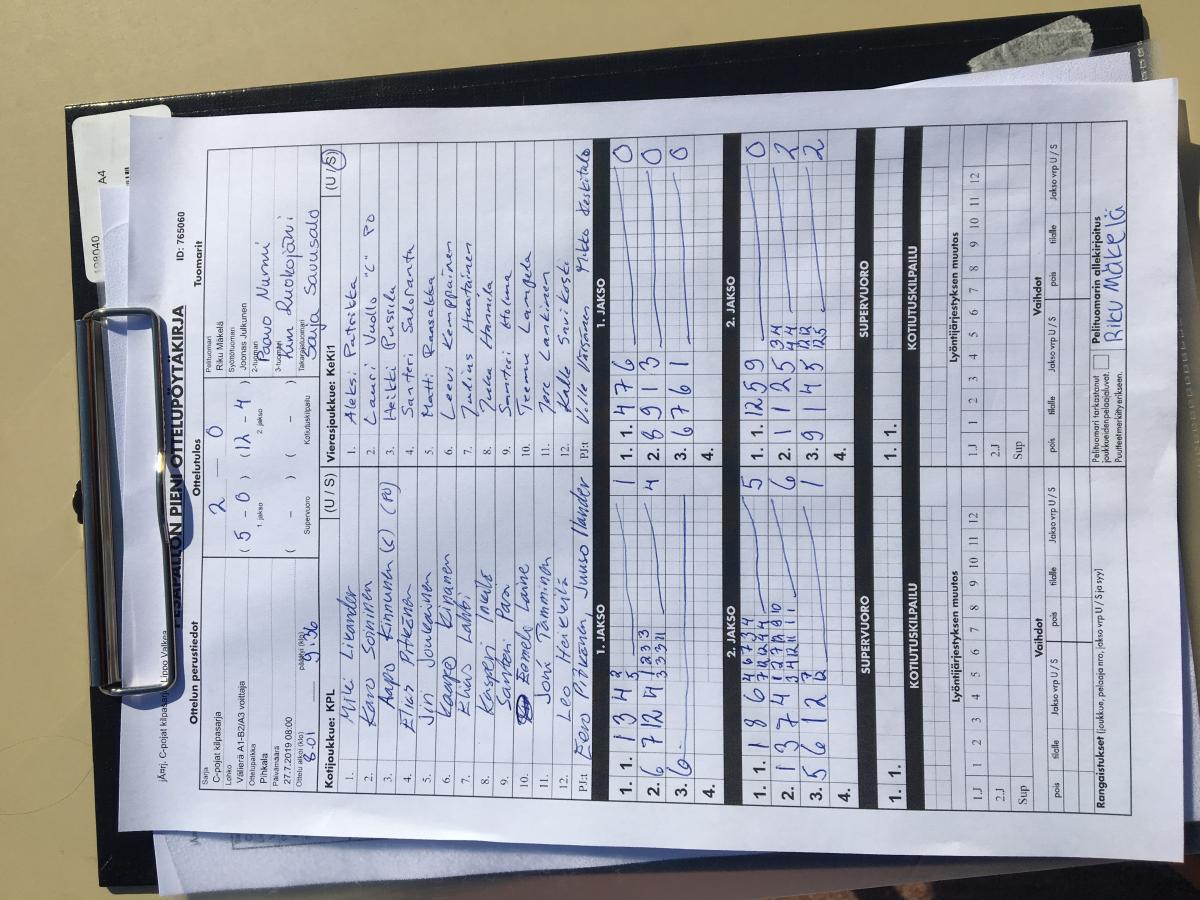 jÄrrj, C-pojat kilpasarja, Lippo Valkea
PIENI OTTELUPÖYTÄKIRJA
ID: 765060
Ottelun perustiedot
Ottelutulos
Tuomarit
Sarja
C-pojat kilpasarja
Lohko
Välierä A1-B2/A3 voittaja
Ottelupaikka
Pihkala
Päivämäärä
27.7.2019 08:00
Ottelu alkoi (klo)
8.01
päättyi (klo)
9.36
2 — 0
(5 - 0) (12 - 4)
1. jakso
2. jakso
( - ) ( - )
Supervuoro
Kotiutuskilpailu
Pelituomari
Riku Mäkelä
Syöttötuomari
Joonas Julkunen
2-tuomari
Paavo Nurmi
3-tuomari
Kimi Ruokojärvi
Takarajatuomari
Saija Savusalo
Kotijoukkue: KPL
(U / S)
1. Miki Likander
2. Karo Soininen
3. Aapo Kinnunen (C) (PU)
4. Elias Pitkänen
5. Jiri Joukainen
6. Kaapo Kinanen
7. Elias Lahti
8. Kasperi
9. Santeri
10. Eemeli Laine
11. Joni Tamminen
12. Leo Heikkilä
PJ:t Eero Pitkänen, Juuso Ilander
Vierasjoukkue: KeKi1
(U / S)
1. Aleksi Patrikka
2. Lauri Vuollo "C" PO
3. Heikki Pussila
4. Santeri Saloranta
5. Matti Raasakka
6. Leevi Kemppainen
7. Julius
8. Juha Hannila
9. Santeri Holma
10. Teemu Lampela
11. Jere Lankinen
12. Kalle Savikoski
PJ:t Ville Väisänen Mikko Keskitalo
1. JAKSO
1. 1. 1 3 4 1
2. 6 7 12 4 4
3. 6
4.
1. JAKSO
1. 1. 4 7 6 0
2. 8 9 1 3 0
3. 6 7 6 1 0
4.
2. JAKSO
1. 1. 1 8 6 5
2. 1 3 7 4 6
3. 5 6 12 1
4.
2. JAKSO
1. 1. 12 5 9 0
2. 1 1 12 5 2
3. 9 1 4 5 2
4.
SUPERVUORO
1. 1.
SUPERVUORO
1. 1.
KOTIUTUSKILPAILU
KOTIUTUSKILPAILU
Lyöntijärjestyksen muutos
1.J 1 2 3 4 5 6 7 8 9 10 11 12
2.J
Sup
Lyöntijärjestyksen muutos
1.J 1 2 3 4 5 6 7 8 9 10 11 12
2.J
Sup
Vaihdot
pois tilalle Jakso vrp U / S pois tilalle Jakso vrp U / S
Vaihdot
pois tilalle Jakso vrp U / S pois tilalle Jakso vrp U / S
Rangaistukset (joukkue, pelaaja nro, jakso vrp U / S ja syy)
Pelituomari tarkastanut
joukkueidenpelaajaluvat.
Puutteet merkitty erikseen.
Pelituomarin allekirjoitus
Riku Mäkelä
A4